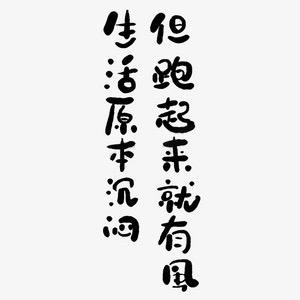 生活原本沉闷
但跑起来就有風